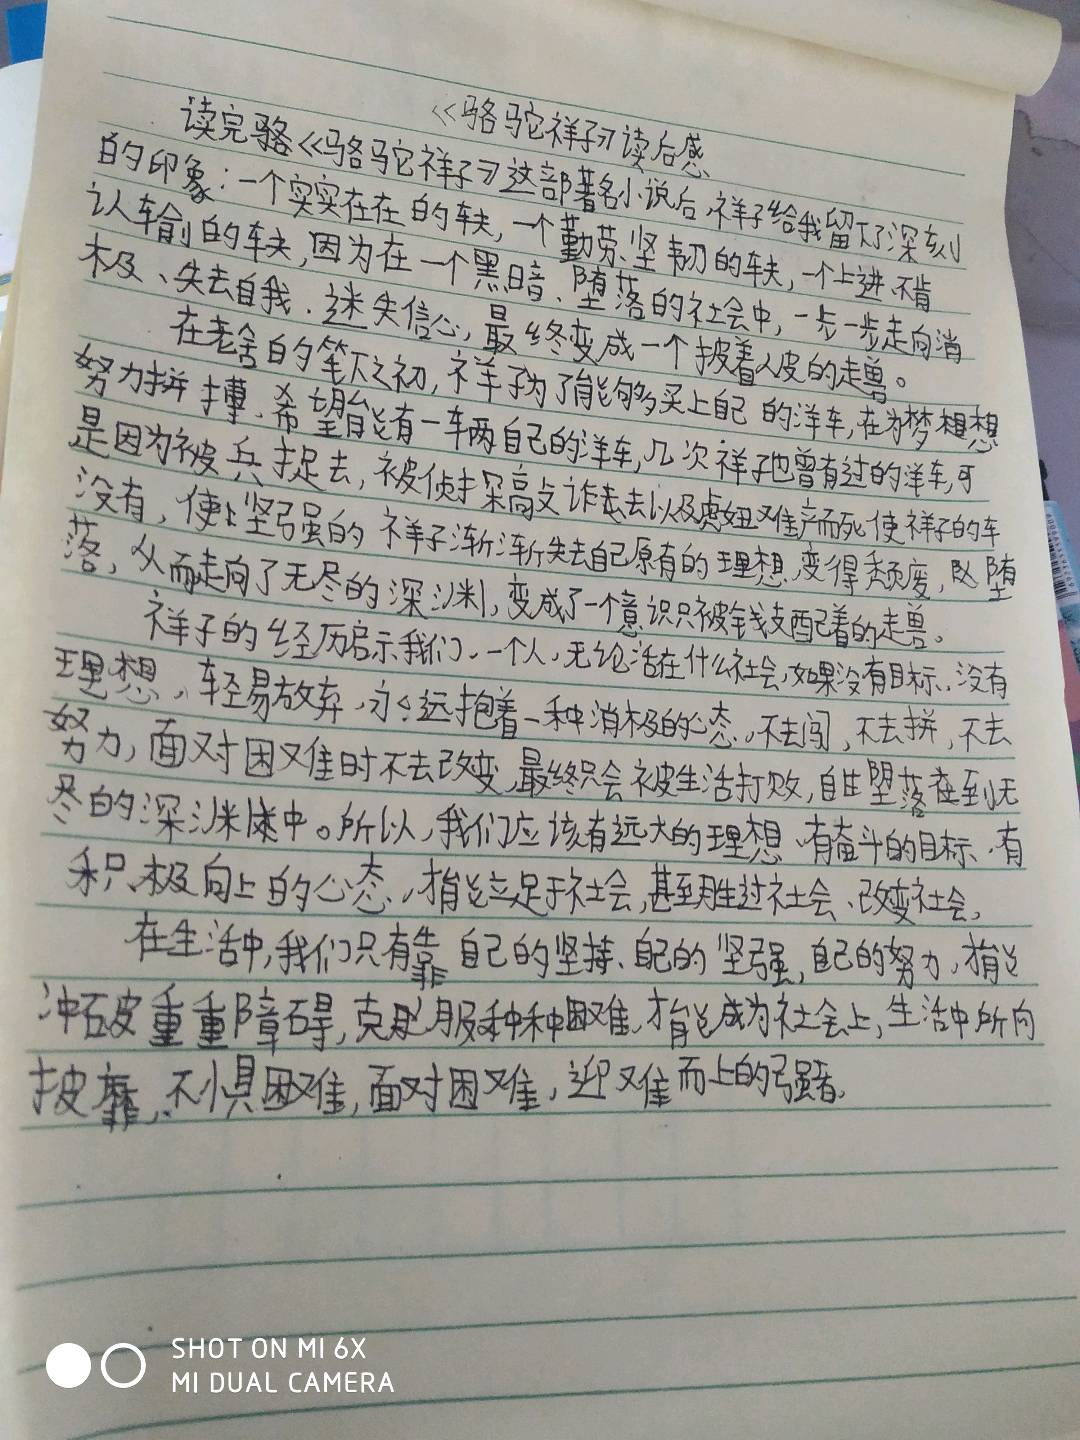 《骆驼祥子》读后感
读完骆《骆驼祥子》这部著名小说后,祥子给我留下了深刻
的印象:一个实实在在的车夫,一个勤劳、坚韧的车夫,一个上进、不肯
认输的车夫,因为在一个黑暗、堕落的社会中,一步一步走向消
极、失去自我、迷失信心,最终变成一个披着人皮的走兽。
在老舍的笔下之初,祥子为了能够买上自己的洋车,在为梦想想
努力拼搏、希望能有一车两自己的洋车,几次祥子也曾有过的洋车,可
是因为被兵捉去,被侦探高文诈去去以及虎妞难产而死使祥子的车
没有,使上坚强的祥子渐渐失去自己原有的理想,变得颓废,堕
落,从而走向了无尽的深渊,变成了一个意识只被钱支配着的走兽。
祥子的经历启示我们,一个人,无论活在什么社会,如果没有目标、没有
理想,轻易放弃,永远抱着一种消极的心态,不去闯,不去拼,不去
努力,面对困难时不去改变,最终只会被生活打败,自甘堕落在到无
尽的深渊中。所以,我们应该有远大的理想、有奋斗的目标、有
积极向上的心态,才能立足于社会,甚至胜过社会、改变社会,
在生活中,我们只有靠自己的坚持、自己的坚强,自己的努力,才能
冲破重重障碍,克服种种困难,才能成为社会上,生活中所向
披靡,不惧困难,面对困难,迎难而上的强者,
SHOT ON MI 6X
MI DUAL CAMERA